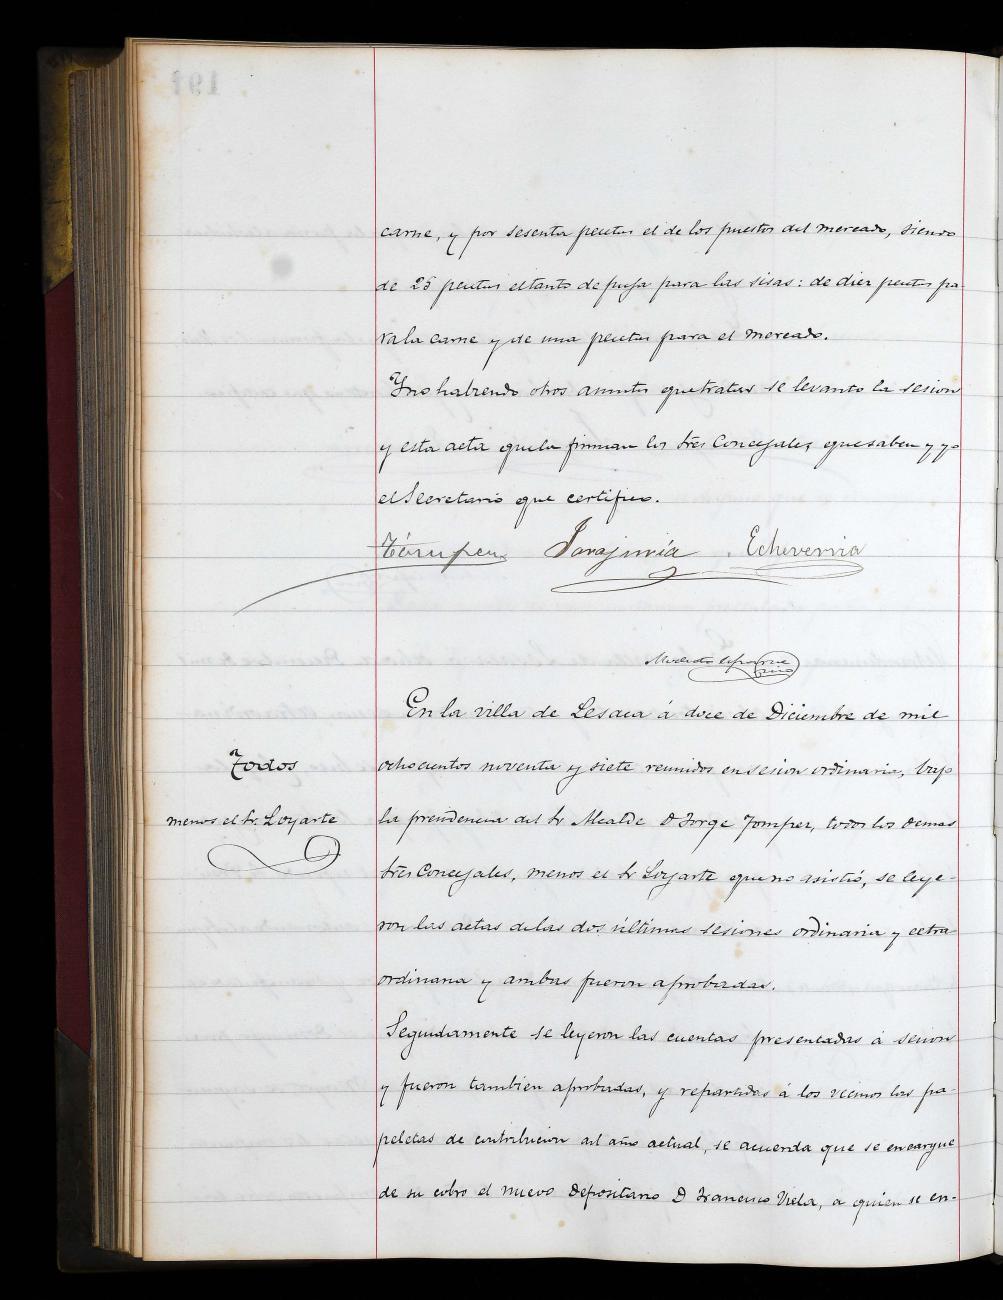 carne, y por sesenta pesetas el de los puestos del mercado, siendo
de 25 pesetas el tanto de puja para las sisas: de diez pesetas pa
ra la carne y de una peseta para el mercado.
Y no habiendo otros asuntos que tratar se levantó la sesion
y esta acta que la firman los Sres Concejales que saben y yo
el Secretario que certifico.
Tarajuria Echeverria
En la villa de Lesaca á doce de Diciembre de mil
Todos
ochocientos noventa y siete reunidos en sesion ordinaria, bajo
menos el Sr. Loyarte
la presidencia del Sr Alcalde D Jorge Tompes, todos los demas
Sres Concejales, menos el Sr Loyarte que no asistió, se leye-
ron las actas de las dos últimas sesiones ordinaria y extra
ordinaria y ambas fueron aprobadas.
Seguidamente se leyeron las cuentas presentadas á sesion
y fueron tambien aprobadas, y repartidas á los vecinos las pa-
peletas de contribucion del año actual, se acuerda que se encargue
de su cobro el nuevo Depositario D Francisco Viela, a quien se en-